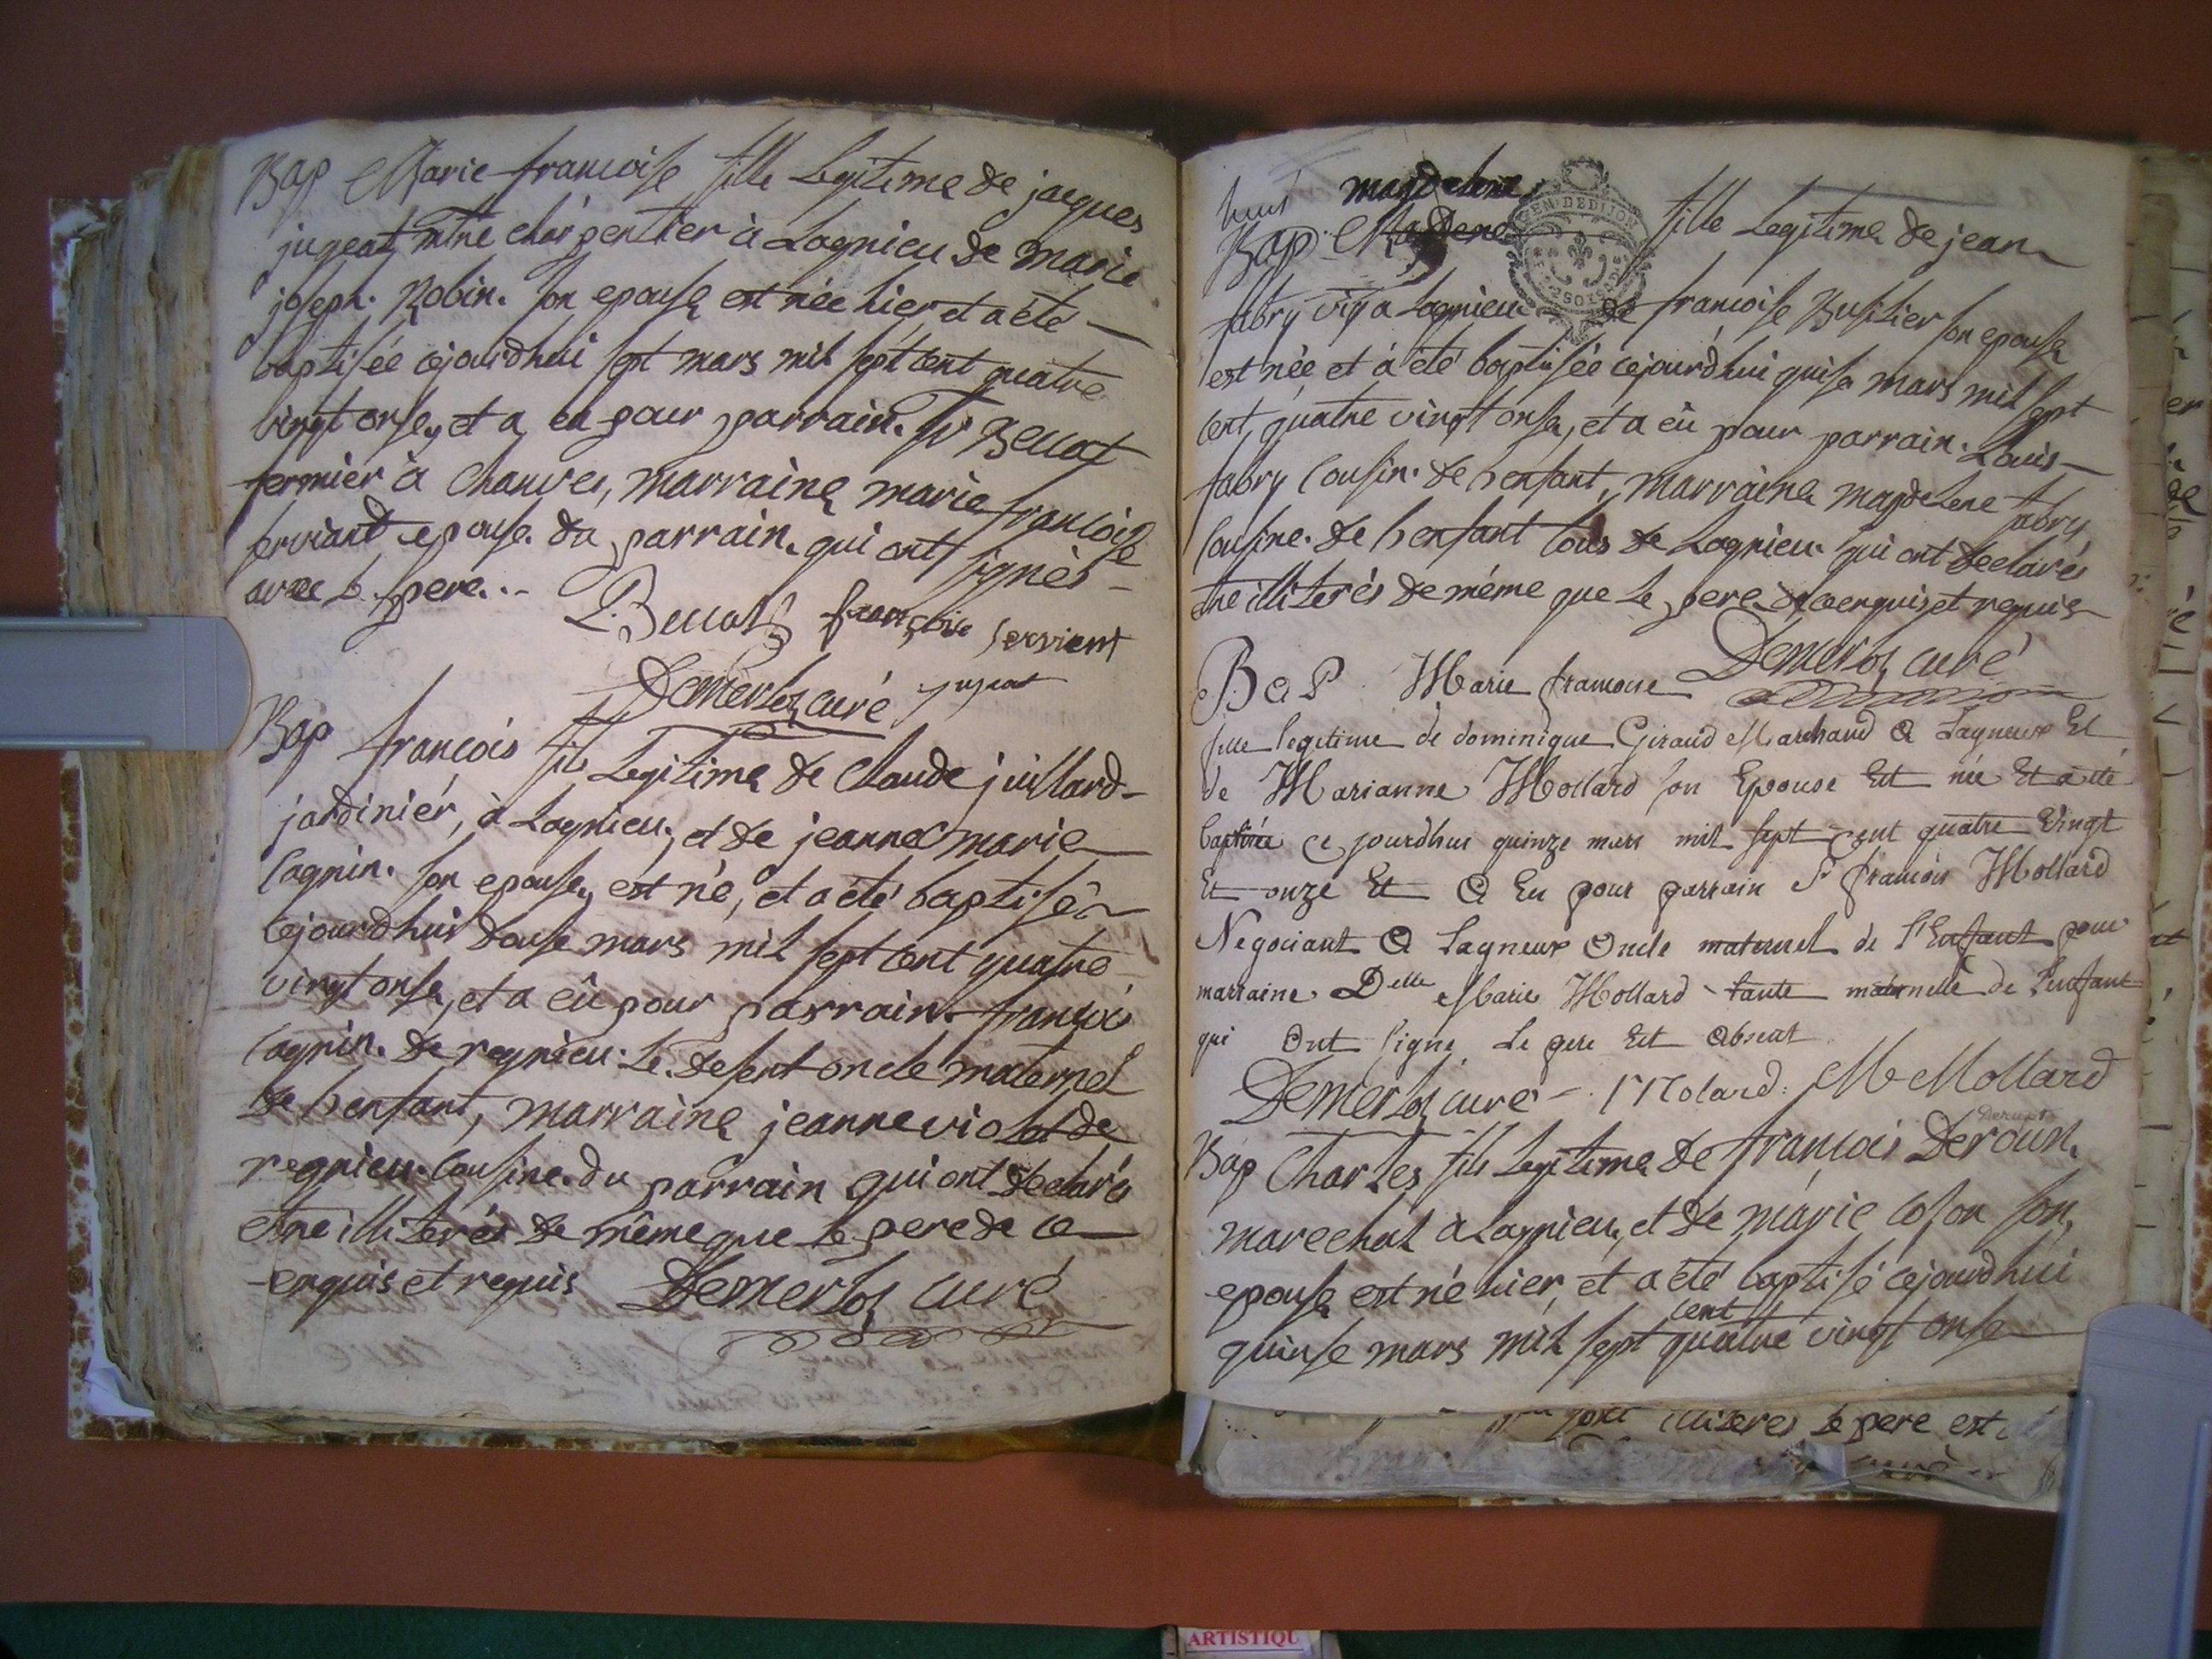 Bap Marie francoise fille Legitime de jacques
jugeat mtre charpentier à Lagnieu de marie
joseph Robin son epouse est née hier et a été
baptisée cejourdhui sept mars mil sept cent quatre
vingt onse, et a eu pour parrain Sr Beccat
fermier à Chanves, marraine marie francoise
serviant epouse du parrain qui ont signés
avec le pere
françoise servient
Demerloz curé jugeat
Bap francois fils Legitime de Claude juillard
jardiniér, à Lagnieu, et de jeanne marie
Cagnin son epouse, est né, et a été baptisé
cejourdhui douse mars mil sept cent quatre
vingt onse, et a eû pour parrain françois
Cagnin de regnieu le desert oncle maternel
de l'enfant, marraine jeanne violet de
regnieu cousine du parrain qui ont declarés
etre illiterés de même que le pere de ce
enquis et requis Demerloz curé
magdelene
Bap fille Legitime de jean
GEN DE DIJON
fabry vig a Lagnieu de francoise son epouse
est née et à été baptisée cejourd'hui quise mars mil sept
cent quatre vingt onse, et a eû pour parrain Louis
fabry cousin de l'enfant, marraine magdelene fabry
cousine de l'enfant tous de Lagnieu qui ont declarés
etre illiterés de même que le pere de ce enquis et requis
Demerloz curé
Bap Marie francoise
fille legitime de dominique Giraud Marchand a Lagneux Et
de Marianne Mollard son Epouse Est née Et a été
baptisée ce jourdhui quinze mars mil sept cent quatre Vingt
Et onze Et a Eu pour parrain Sr francois Mollard
Negociant a Lagneux Oncle maternel de l'Enfant pour
marraine Delle Marie Mollard tante maternelle de l'enfant
qui Ont signé Le pere Est Absent
Demerloz curé Molard M Mollard
Bap Charles fils Legitime de francois Deroun
marechal à Lagnieu, et de marie coson son
epouse est né hier, et a été baptisé cejourdhui
cent
quinse mars mil sept quatre vingt onse
illiteres le pere est
ARTISTIQU